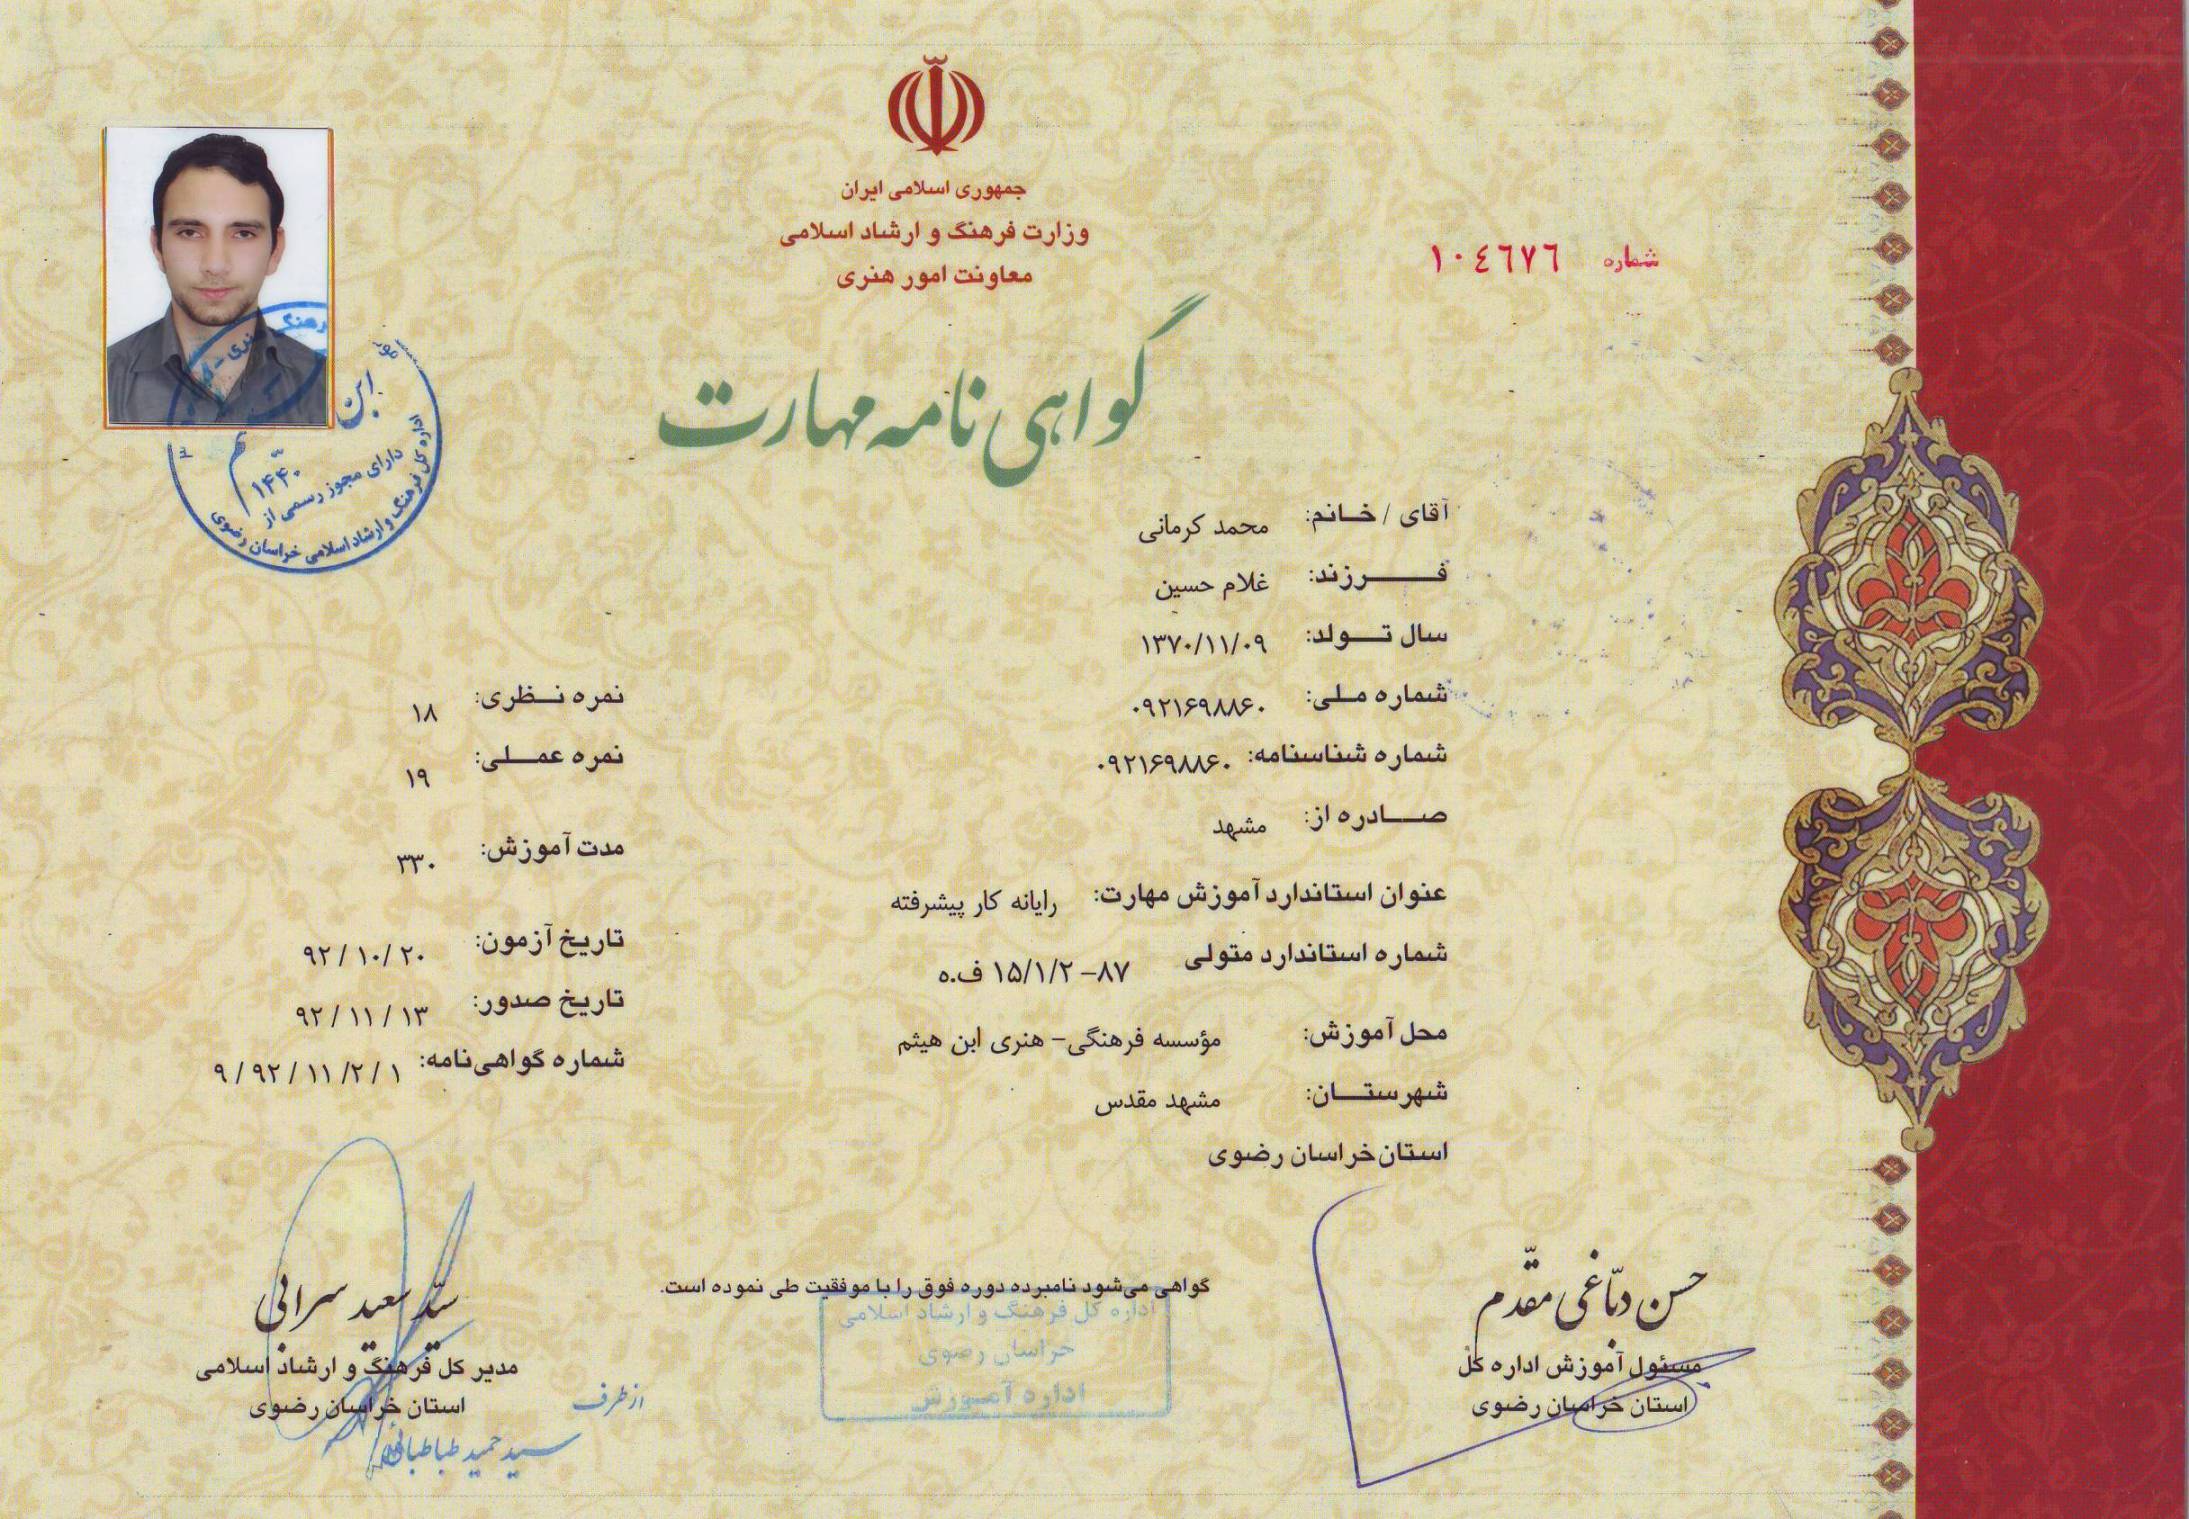 جمهوری اسلامی ایران
وزارت فرهنگ و ارشاد اسلامی
معاونت امور هنری
شماره ١٠٤٦٧٦
گواهی نامه مهارت
آقای / خانم: محمد کرمانی
فرزند: غلام حسین
سال تولد: ۱۳۷۰/۱۱/۰۹
شماره ملی: ۰۹۲۱۶۹۸۸۶۰
شماره شناسنامه: ۰۹۲۱۶۹۸۸۶۰
صادره از: مشهد
عنوان استاندارد آموزش مهارت: رایانه کار پیشرفته
شماره استاندارد متولی ۸۷– ۱۵/۱/۲ ف.ه
محل آموزش: مؤسسه فرهنگی– هنری ابن هیثم
شهرستان: مشهد مقدس
استان خراسان رضوی
نمره نظری: ۱۸
نمره عملی: ۱۹
مدت آموزش: ۳۳۰
تاریخ آزمون: ۹۲/۱۰/۲۰
تاریخ صدور: ۹۲/۱۱/۱۳
شماره گواهی‌نامه: ۹/۹۲/۱۱/۲/۱
ابن
۱۴۴۰
دارای مجوز رسمی از
اداره کل فرهنگ و ارشاد اسلامی خراسان رضوی
گواهی می‌شود نامبرده دوره فوق را با موفقیت طی نموده است.
اداره کل فرهنگ و ارشاد اسلامی
خراسان رضوی
اداره آموزش
حسن دبّاغی مقدّم
مسئول آموزش اداره کل
استان خراسان رضوی
سیّد سعید سرابی
مدیر کل فرهنگ و ارشاد اسلامی
استان خراسان رضوی
از طرف
سید حمید طباطبائی